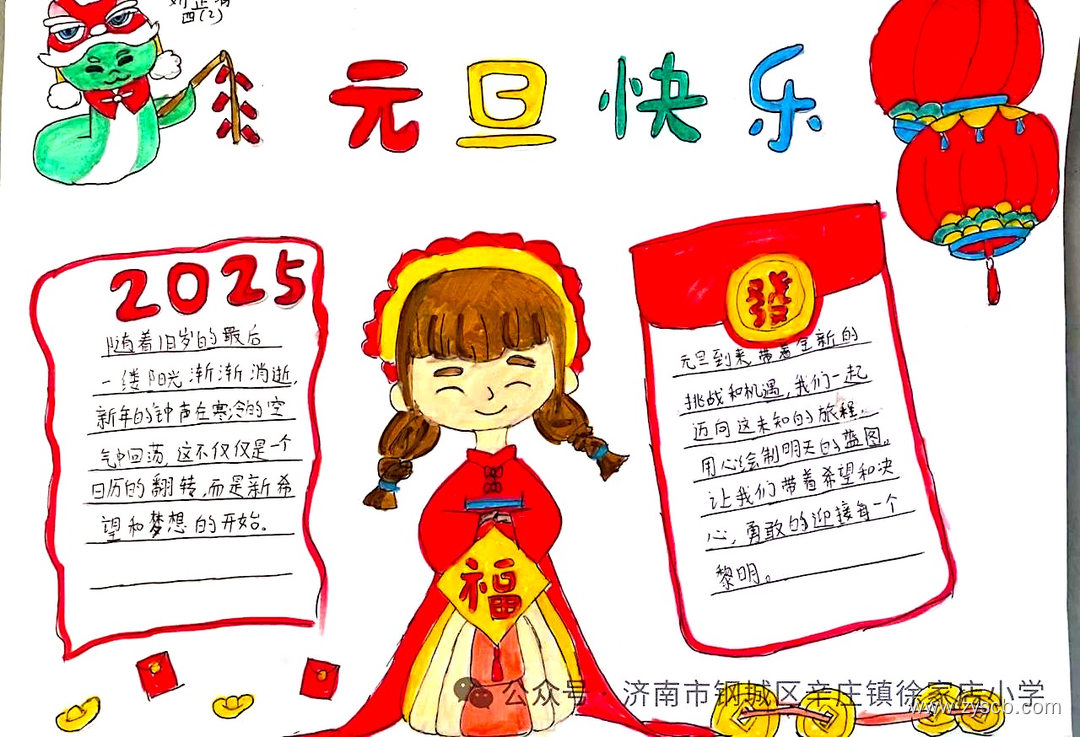 四(2)
元旦快乐
2025
随着旧岁的最后
一缕阳光渐渐消逝,
新年的钟声在寒冷的空
气中回荡,这不仅仅是一个
日历的翻转,而是新希
望和梦想的开始。
福
發
元旦到来带着全新的
挑战和机遇,我们一起
迈向这未知的旅程。
用心绘制明天的蓝图。
让我们带着希望和决
心,勇敢的迎接每一个
黎明。
公众号·济南市钢城区辛庄镇徐家店小学
www.zyscb.com